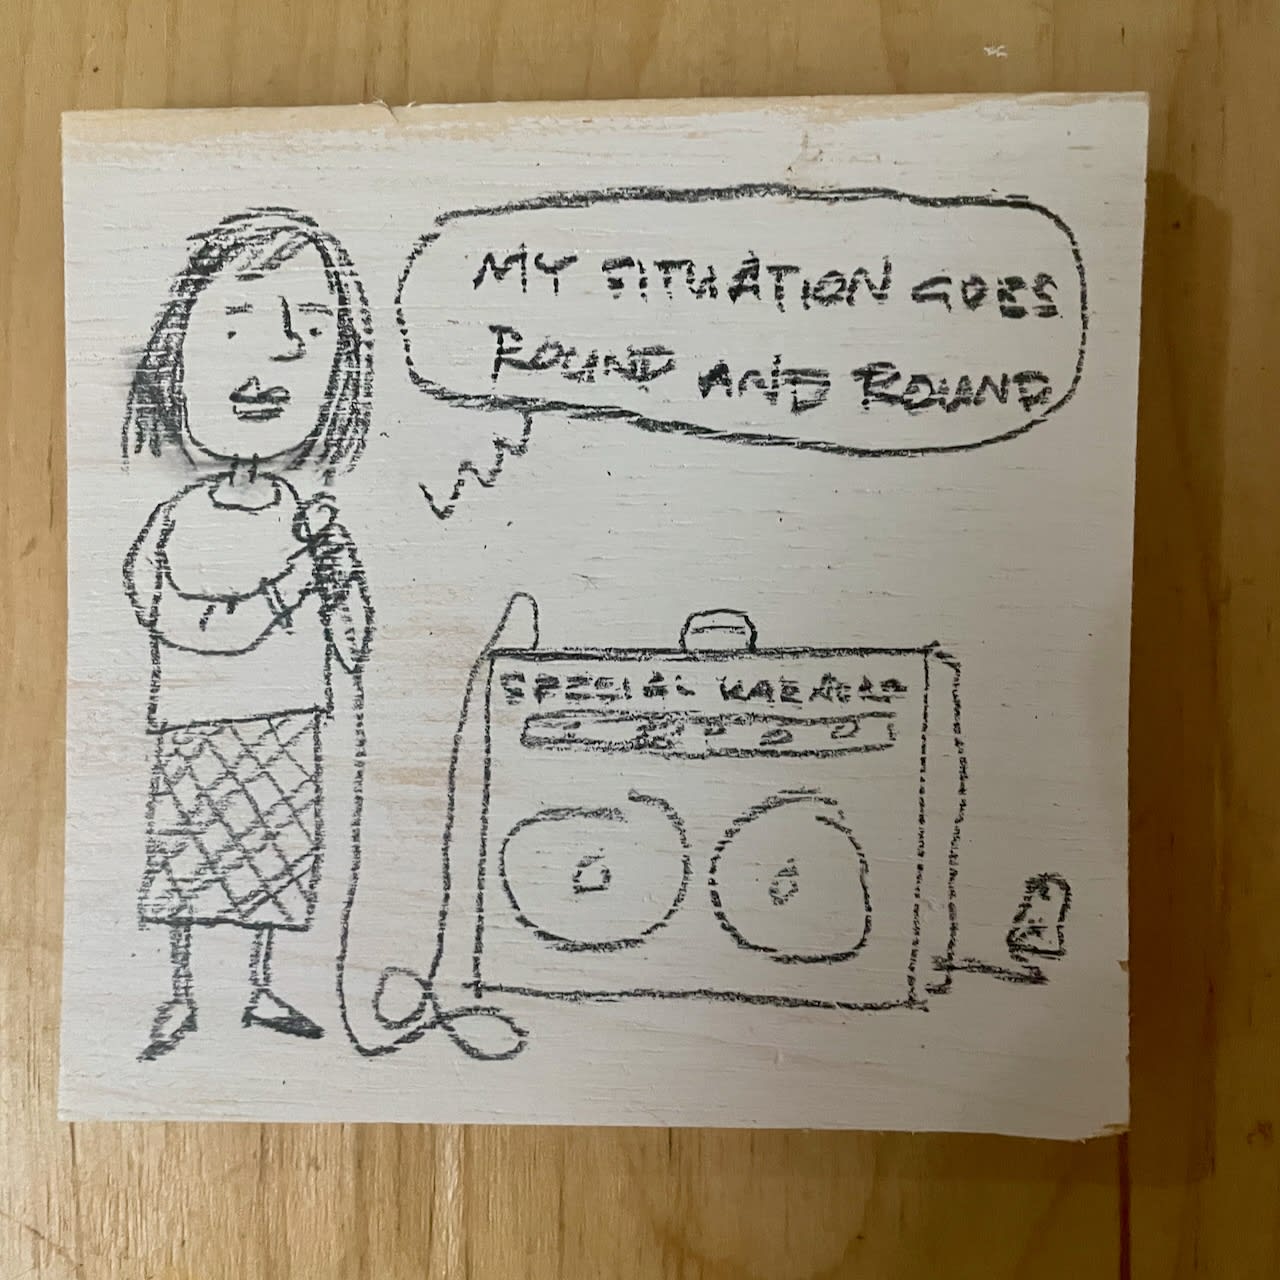 MY SITUATION GOES
ROUND AND ROUND
SPECIAL KARAOKE